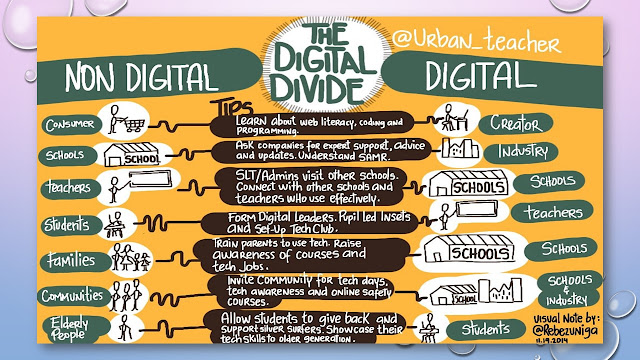 THE
DIGITAL
DIVIDE
@Urban_teacher
NON DIGITAL
DIGITAL
TIPS
CONSUMER
Learn about web literacy, coding and
programming.
Creator
SCHOOLS
SCHOOL
Ask companies for expert support, advice
and updates. Understand SAMR.
Industry
teachers
SLT/Admins visit other schools.
Connect with other schools and
teachers who use effectively.
SCHOOLS
SCHOOLS
Students
Form Digital Leaders. Pupil led Insets
and Set-Up Tech Club.
teachers
Families
Train parents to use tech. Raise
awareness of courses and
tech jobs.
SCHOOLS
SCHOOLS
Communities
Invite community for tech days,
tech awareness and online safety
courses.
SCHOOL
SCHOOLS
&
INDUSTRY
Elderly
People
Allow students to give back and
support silver surfers. Showcase their
tech skills to older generation.
Students
Visual Note by:
@Rebezuniga
11.19.2014